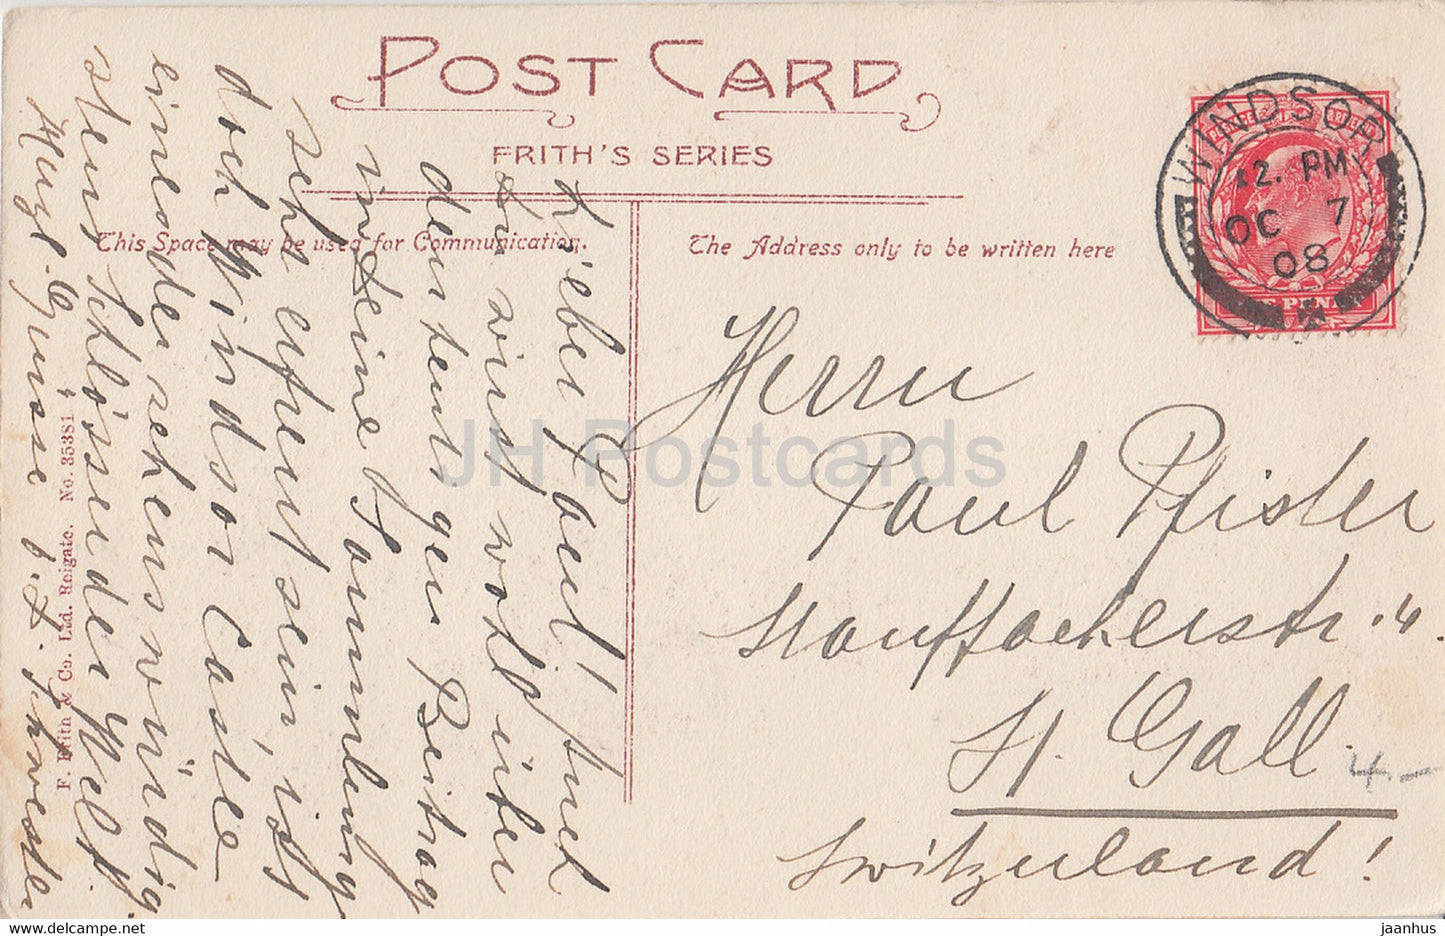 POST CARD
FRITH'S SERIES
This Space may be used for Communication.
The Address only to be written here
WINDSOR
12. PM
OC 7
08
Lieber Paul! Auch
Du wirst wohl über
den heutigen Beitrag
in Deine Sammlung
sehr erfreut sein, ist
doch Windsor Castle
eines der sehenswürdig
stens Schlösser der Welt.
Herzl. Grüsse b. d. Schwester
Herrn
Paul Pfister
St. Gall.
Switzerland!
4-
F. Frith & Co. Ltd. Reigate. No. 35381
JH Postcards
jaanhus